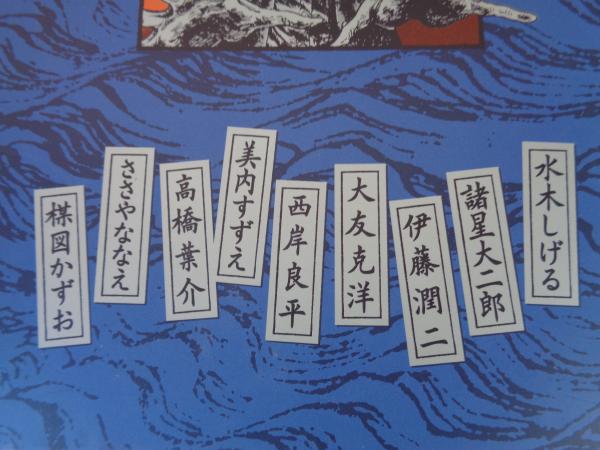 水木しげる
諸星大二郎
伊藤潤二
大友克洋
西岸良平
美内すずえ
高橋葉介
ささやななえ
楳図かずお